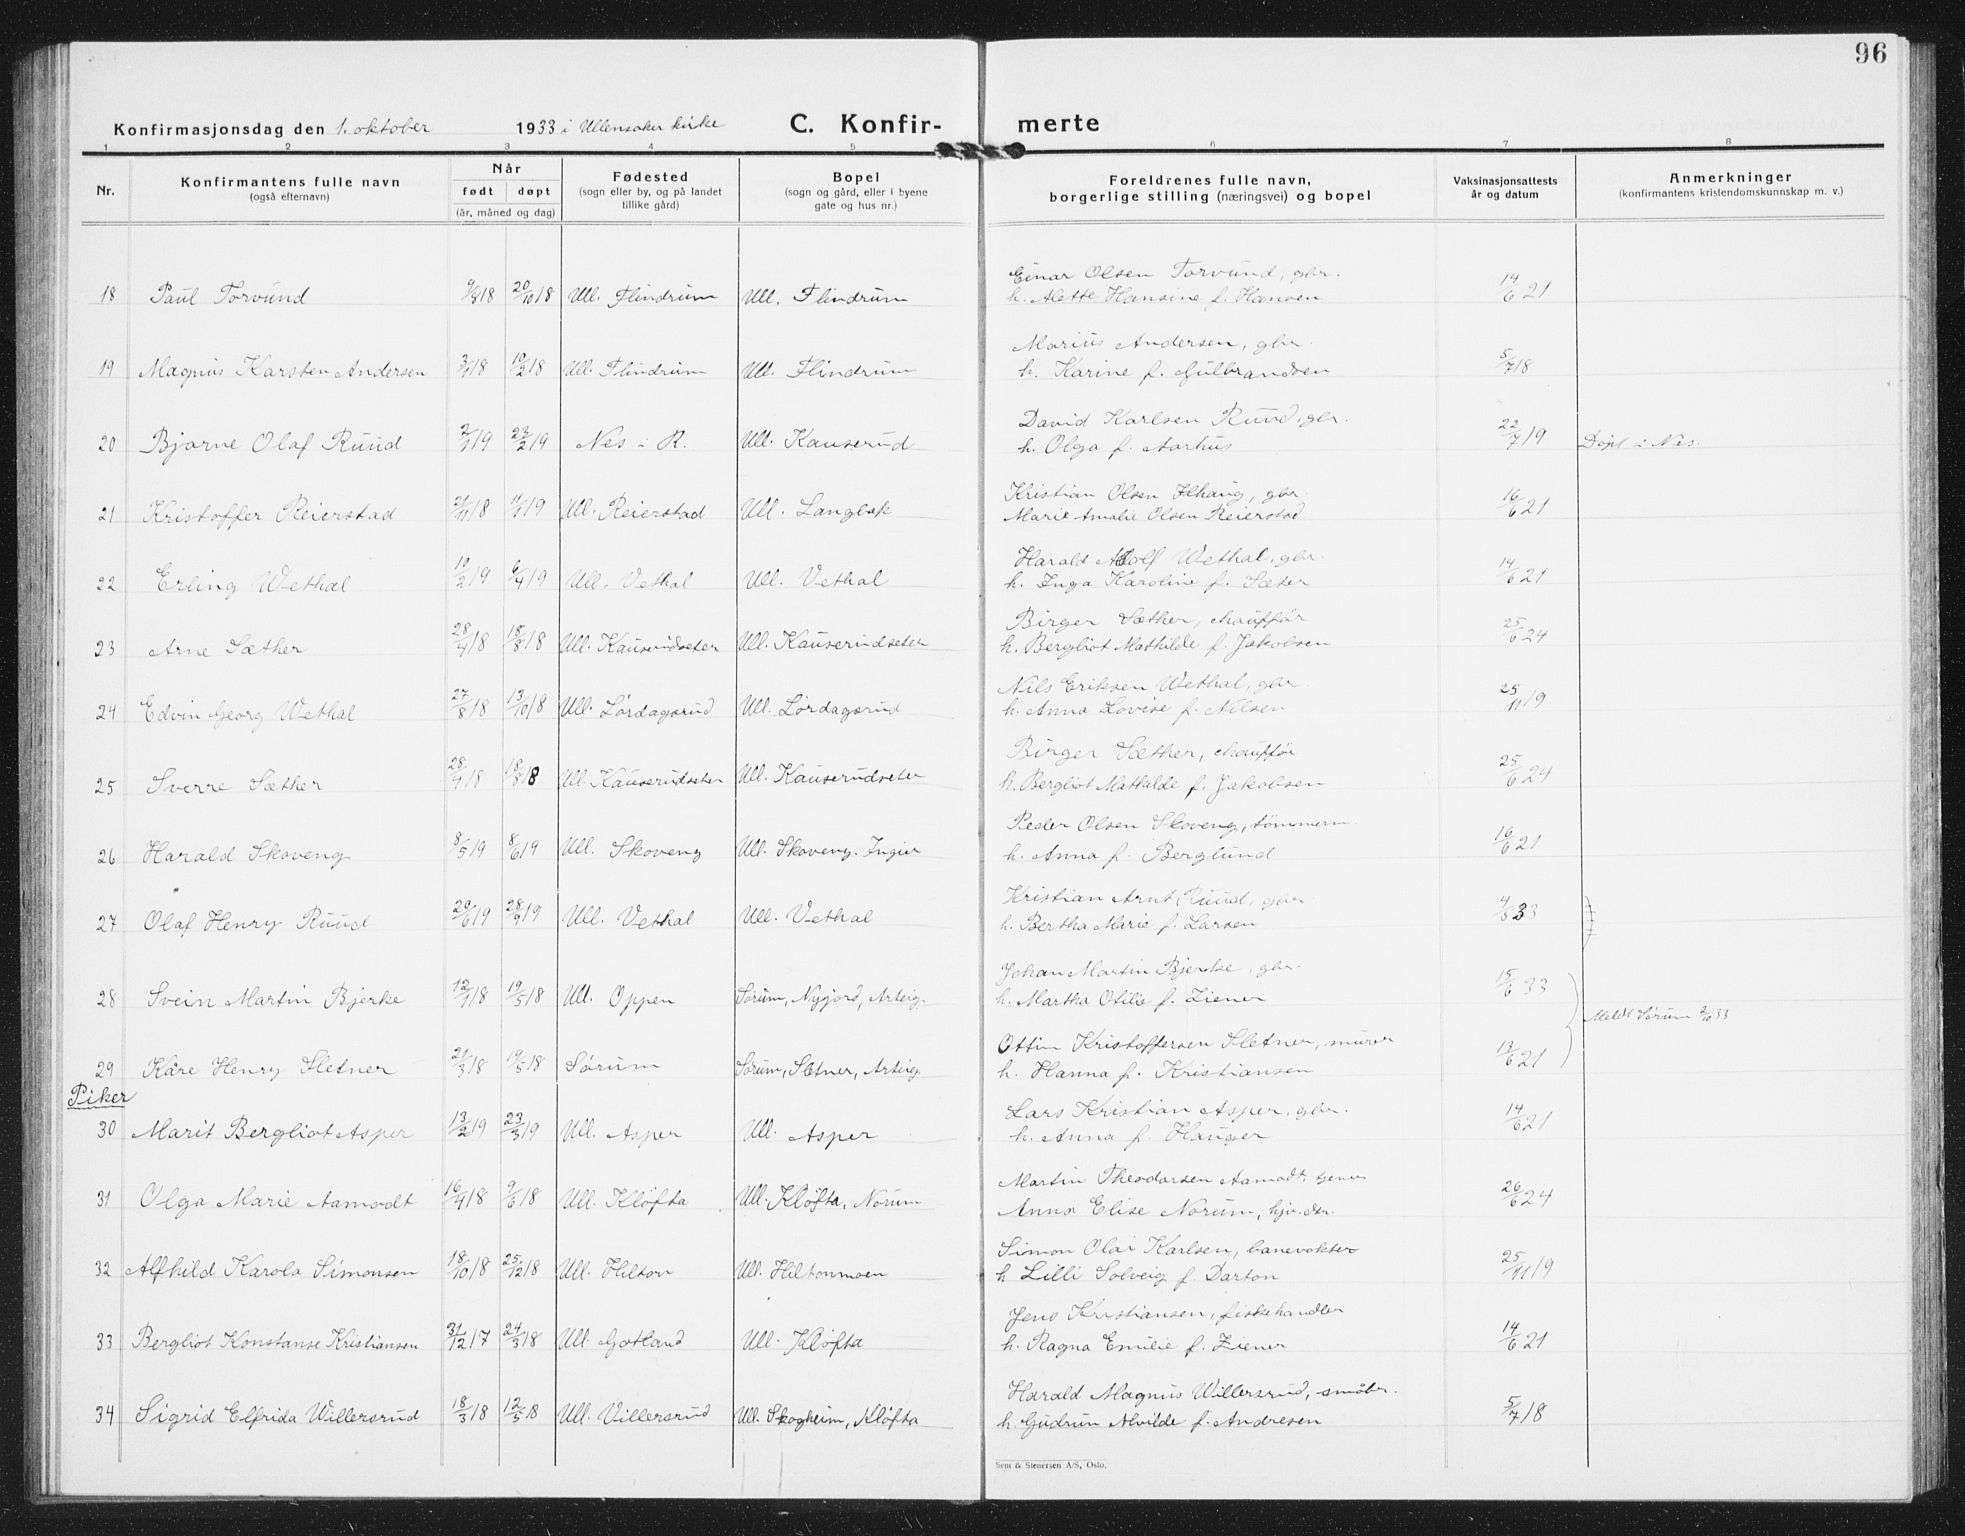 96
Konfirmasjonsdag den 1. oktober 1933 i Ullensaker kirke C. Konfir- merte
1 2 3 4 5 6 7 8
Nr. Konfirmantens fulle navn (også efternavn) Når født døpt (år, måned og dag) Fødested (sogn eller by, og på landet tillike gård) Bopel (sogn og gård, eller i byene gate og hus nr.) Foreldrenes fulle navn, borgerlige stilling (næringsvei) og bopel Vaksinasjonsattests år og datum Anmerkninger (konfirmantens kristendomskunnskap m. v.)
Einar Olsen Torvund, gbr.
18 Paul Torvund 9/8 18 20/10 18 Ull. Flindrum Ull. Flindrum h. Alette Hansine f. Hansen 14/6 21
Marius Andersen, gbr.
19 Magnus Karsten Andersen 3/1 18 10/2 18 Ull. Flindrum Ull. Flindrum h. Karine f. Gulbrandsen 5/7 18
David Karlsen Ruud, gbr.
20 Bjarne Olaf Ruud 2/1 19 23/2 19 Nes i R. Ull. Kauserud h. Olga f. Aarhus 22/7 19 Døpt i Nes.
Kristian Olsen Ilhaug, gbr.
21 Kristoffer Reierstad 21/11 18 11/1 19 Ull. Reierstad Ull. Langbak Marie Amalie Olsen Reierstad 16/6 21
Harald Adolf Wethal, gbr.
22 Erling Wethal 10/2 19 6/4 19 Ull. Vethal Ull. Vethal h. Inga Karoline f. Sæter 14/6 21
Birger Sæther, chauffør
23 Arne Sæther 28/4 18 18/8 18 Ull. Kauserudseter Ull. Kauserudseter h. Bergliot Mathilde f. Jakobsen 25/6 24
Nils Eriksen Wethal, gbr.
24 Edvin Georg Wethal 27/8 18 13/10 18 Ull. Lørdagsrud Ull. Lørdagsrud h. Anna Lovise f. Nilsen 25/11 19
Birger Sæther, chauffør
25 Sverre Sæther 28/4 18 18/8 18 Ull. Kauserudseter Ull. Kauserudseter h. Bergliot Mathilde f. Jakobsen 25/6 24
Peder Olsen Skoveng, tømmerm.
26 Harald Skoveng 8/5 19 8/6 19 Ull. Skoveng Ull. Skoveng. Ingier h. Anna f. Berglund 16/6 21
Kristian Arnt Ruud, gbr.
27 Olaf Henry Ruud 20/6 19 28/9 19 Ull. Vethal Ull. Vethal h. Bertha Marie f. Larsen 4/6 33
Johan Martin Bjerke, gbr.
28 Svein Martin Bjerke 12/1 18 19/5 18 Ull. Oppen Sørum, Nyjord, Arteig. h. Martha Otilie f. Ziener 15/6 33
Meldt Sørum 2/10 33
Ottin Kristoffersen Sletner, murer
29 Kåre Henry Sletner 21/3 18 19/5 18 Sørum Sørum, Sletner, Arteig h. Hanna f. Kristiansen 13/6 21
Piker
Lars Kristian Asper, gbr.
30 Marit Bergliot Asper 13/2 19 23/3 19 Ull. Asper Ull. Asper h. Anna f. Hauger 14/6 21
Martin Theodorsen Aamodt,
31 Olga Marie Aamodt 16/4 18 9/6 18 Ull. Kløfta Ull. Kløfta, Norum Anna Elise Norum, hjv. der. 26/6 24
Simon Olai Karlsen, banevokter
32 Alfhild Karola Simonsen 18/10 18 25/12 18 Ull. Hilton Ull. Hiltonmoen h Lilli Solveig f. Darton 25/11 19
Jens Kristiansen, fiskehandler
33 Bergliot Konstanse Kristiansen 31/12 17 24/3 18 Ull Gotland Ull. Kløfta h. Ragna Emilie f. Ziener 14/6 21
Harald Magnus Willersrud, småbr.
34 Sigrid Elfrida Willersrud 18/3 18 12/5 18 Ull. Villersrud Ull. Skogheim, Kløfta h. Gudrun Alvilde f. Andresen 5/7 18
Sem & Stenersen A/S, Oslo.